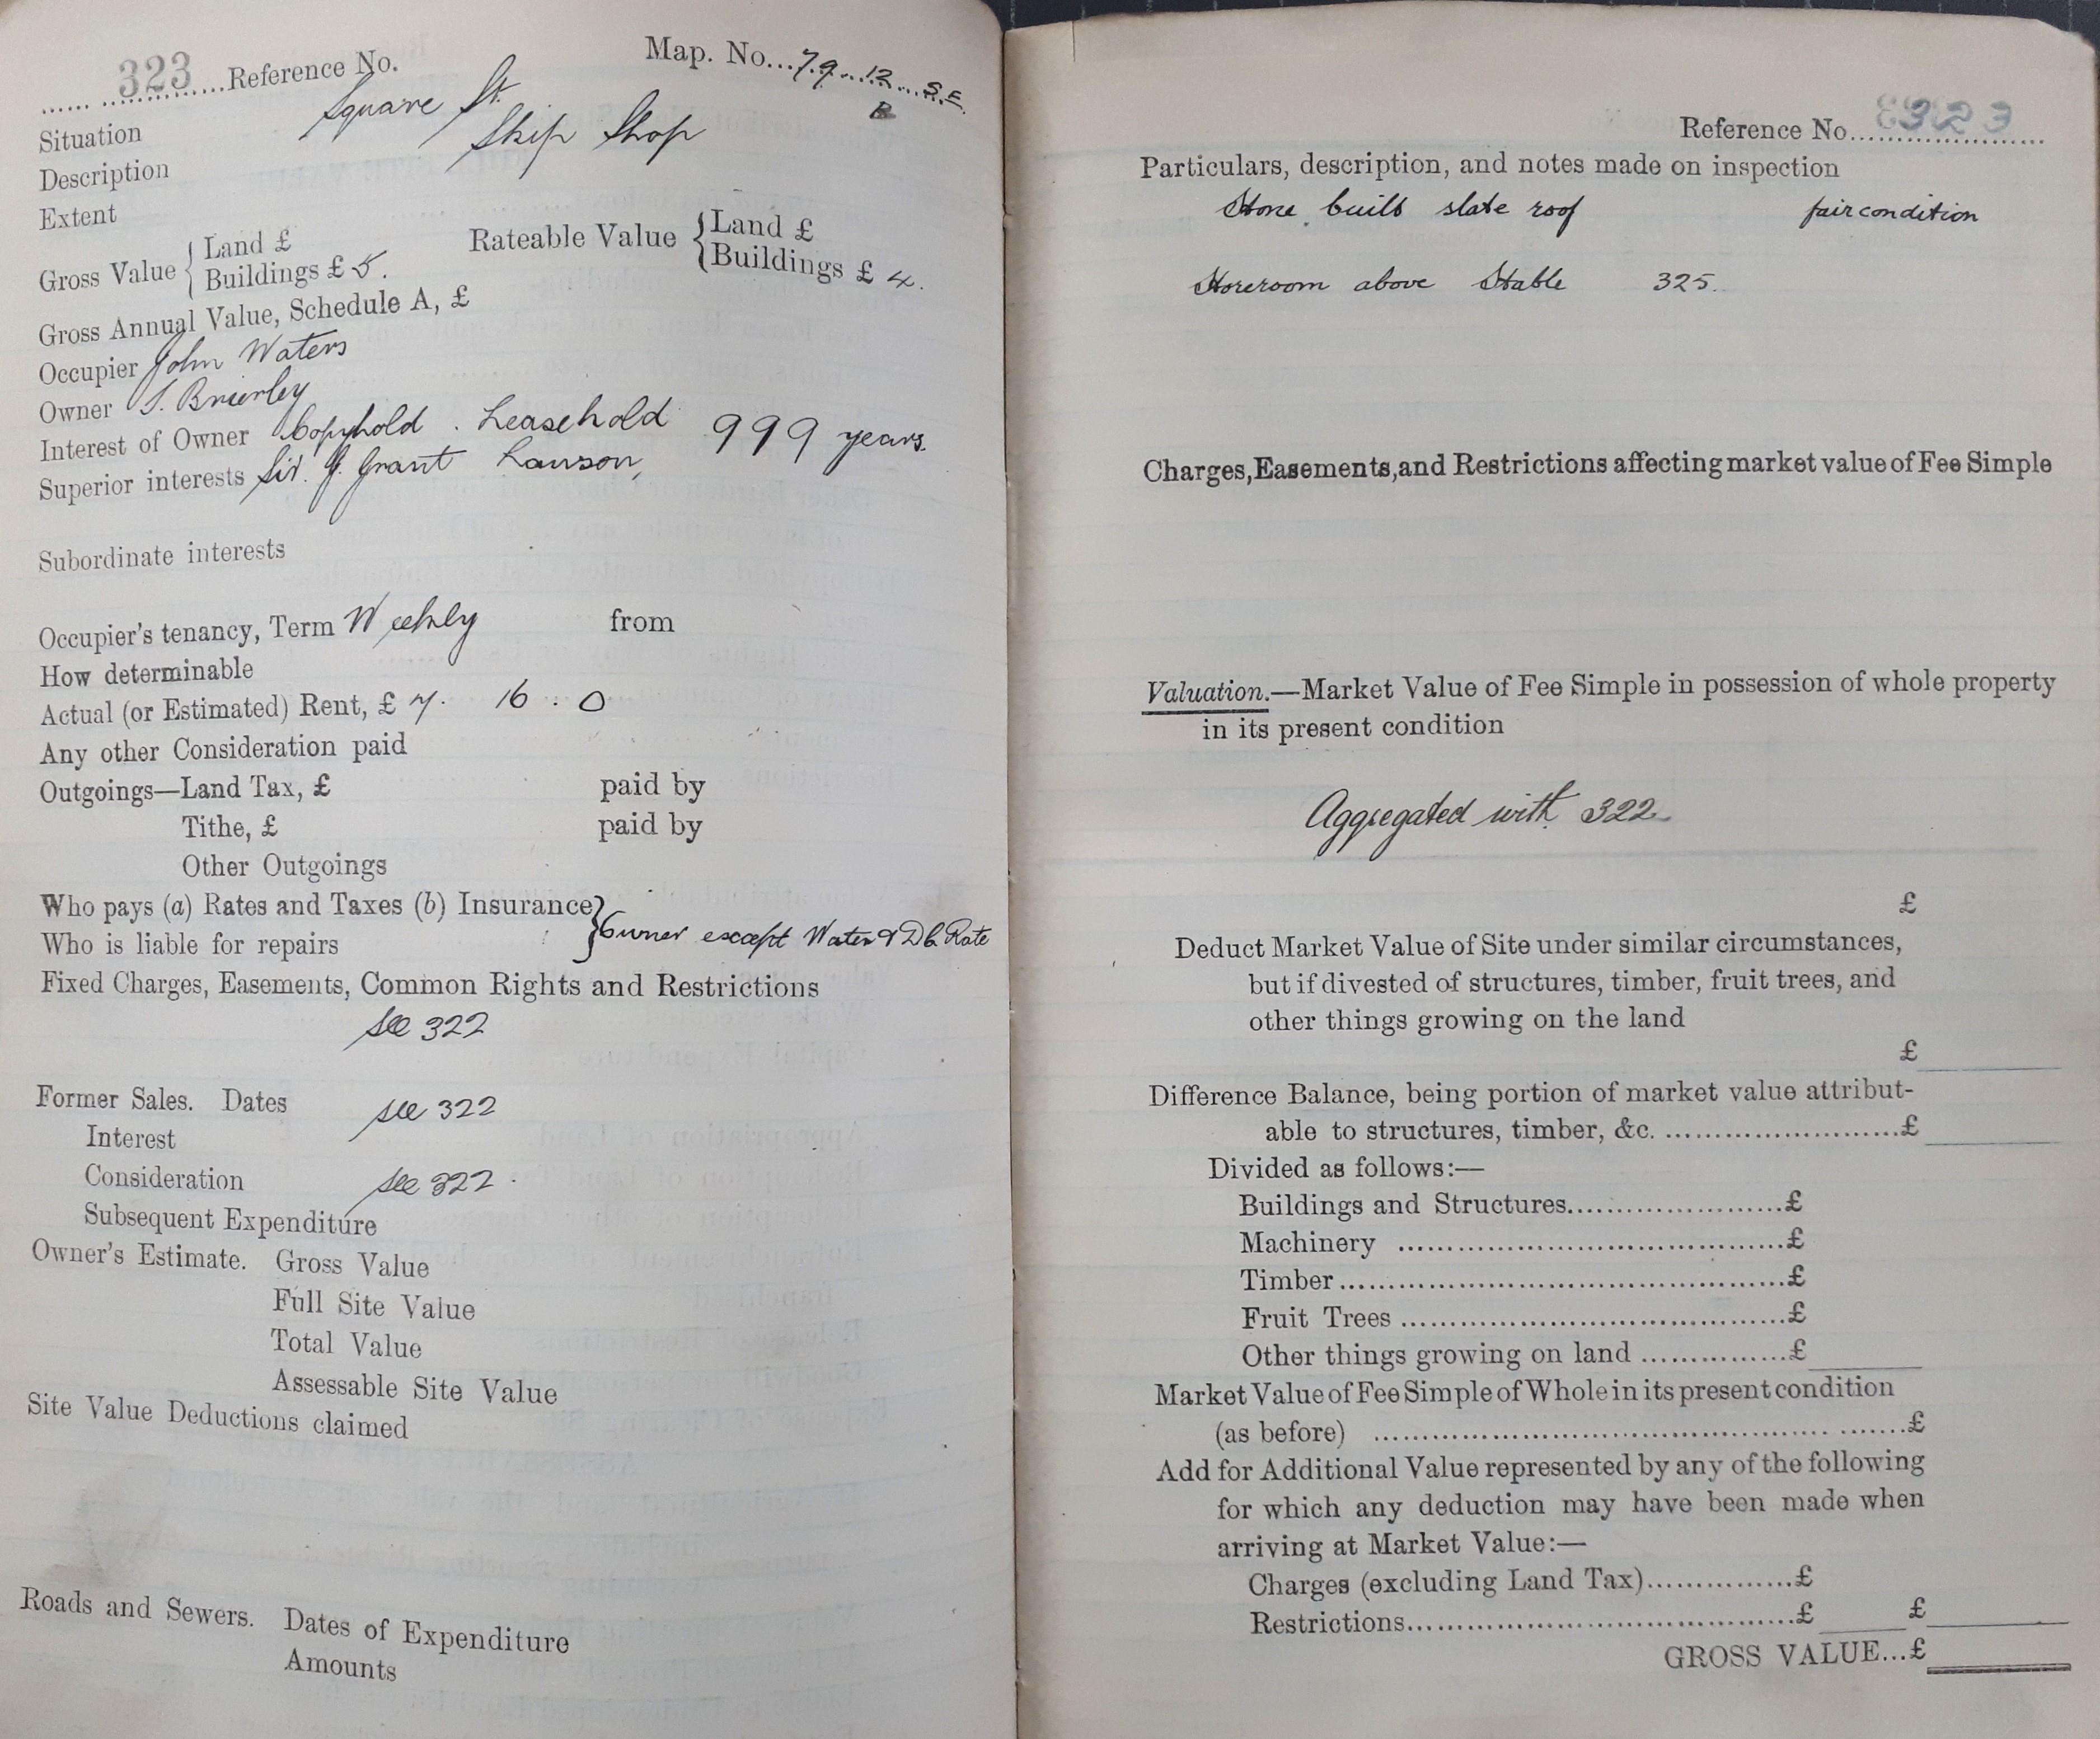 323 Reference No. Map. No. 79. 12. S.E.
B
Situation Square St.
Description Skip Shop
Extent
Gross Value { Land £ Rateable Value { Land £
Buildings £ 5. Buildings £ 4.
Gross Annual Value, Schedule A, £
Occupier John Waters
Owner S. Brierley
Interest of Owner Copyhold. Leasehold 999 years.
Superior interests Sir. J. Grant Lawson,
Subordinate interests
Occupier's tenancy, Term Weekly from
How determinable
Actual (or Estimated) Rent, £ 7. 16 . 0
Any other Consideration paid
Outgoings—Land Tax, £ paid by
Tithe, £ paid by
Other Outgoings
Who pays (a) Rates and Taxes (b) Insurance }
Who is liable for repairs } Owner except Water & Rate
Fixed Charges, Easements, Common Rights and Restrictions
see 322
Former Sales. Dates see 322
Interest
Consideration see 322.
Subsequent Expenditure
Owner's Estimate. Gross Value
Full Site Value
Total Value
Assessable Site Value
Site Value Deductions claimed
Roads and Sewers. Dates of Expenditure
Amounts
Reference No. 323
Particulars, description, and notes made on inspection
Stone built slate roof fair condition
Storeroom above Stable 325.
Charges, Easements, and Restrictions affecting market value of Fee Simple
Valuation.—Market Value of Fee Simple in possession of whole property
in its present condition
Aggregated with 322
£
Deduct Market Value of Site under similar circumstances,
but if divested of structures, timber, fruit trees, and
other things growing on the land
£
Difference Balance, being portion of market value attribut-
able to structures, timber, &c. ........................£
Divided as follows:—
Buildings and Structures......................£
Machinery ......................£
Timber......................£
Fruit Trees ......................£
Other things growing on land ...............£
Market Value of Fee Simple of Whole in its present condition
(as before) ......................£
Add for Additional Value represented by any of the following
for which any deduction may have been made when
arriving at Market Value:—
Charges (excluding Land Tax)...............£
Restrictions......................£ £
GROSS VALUE...£